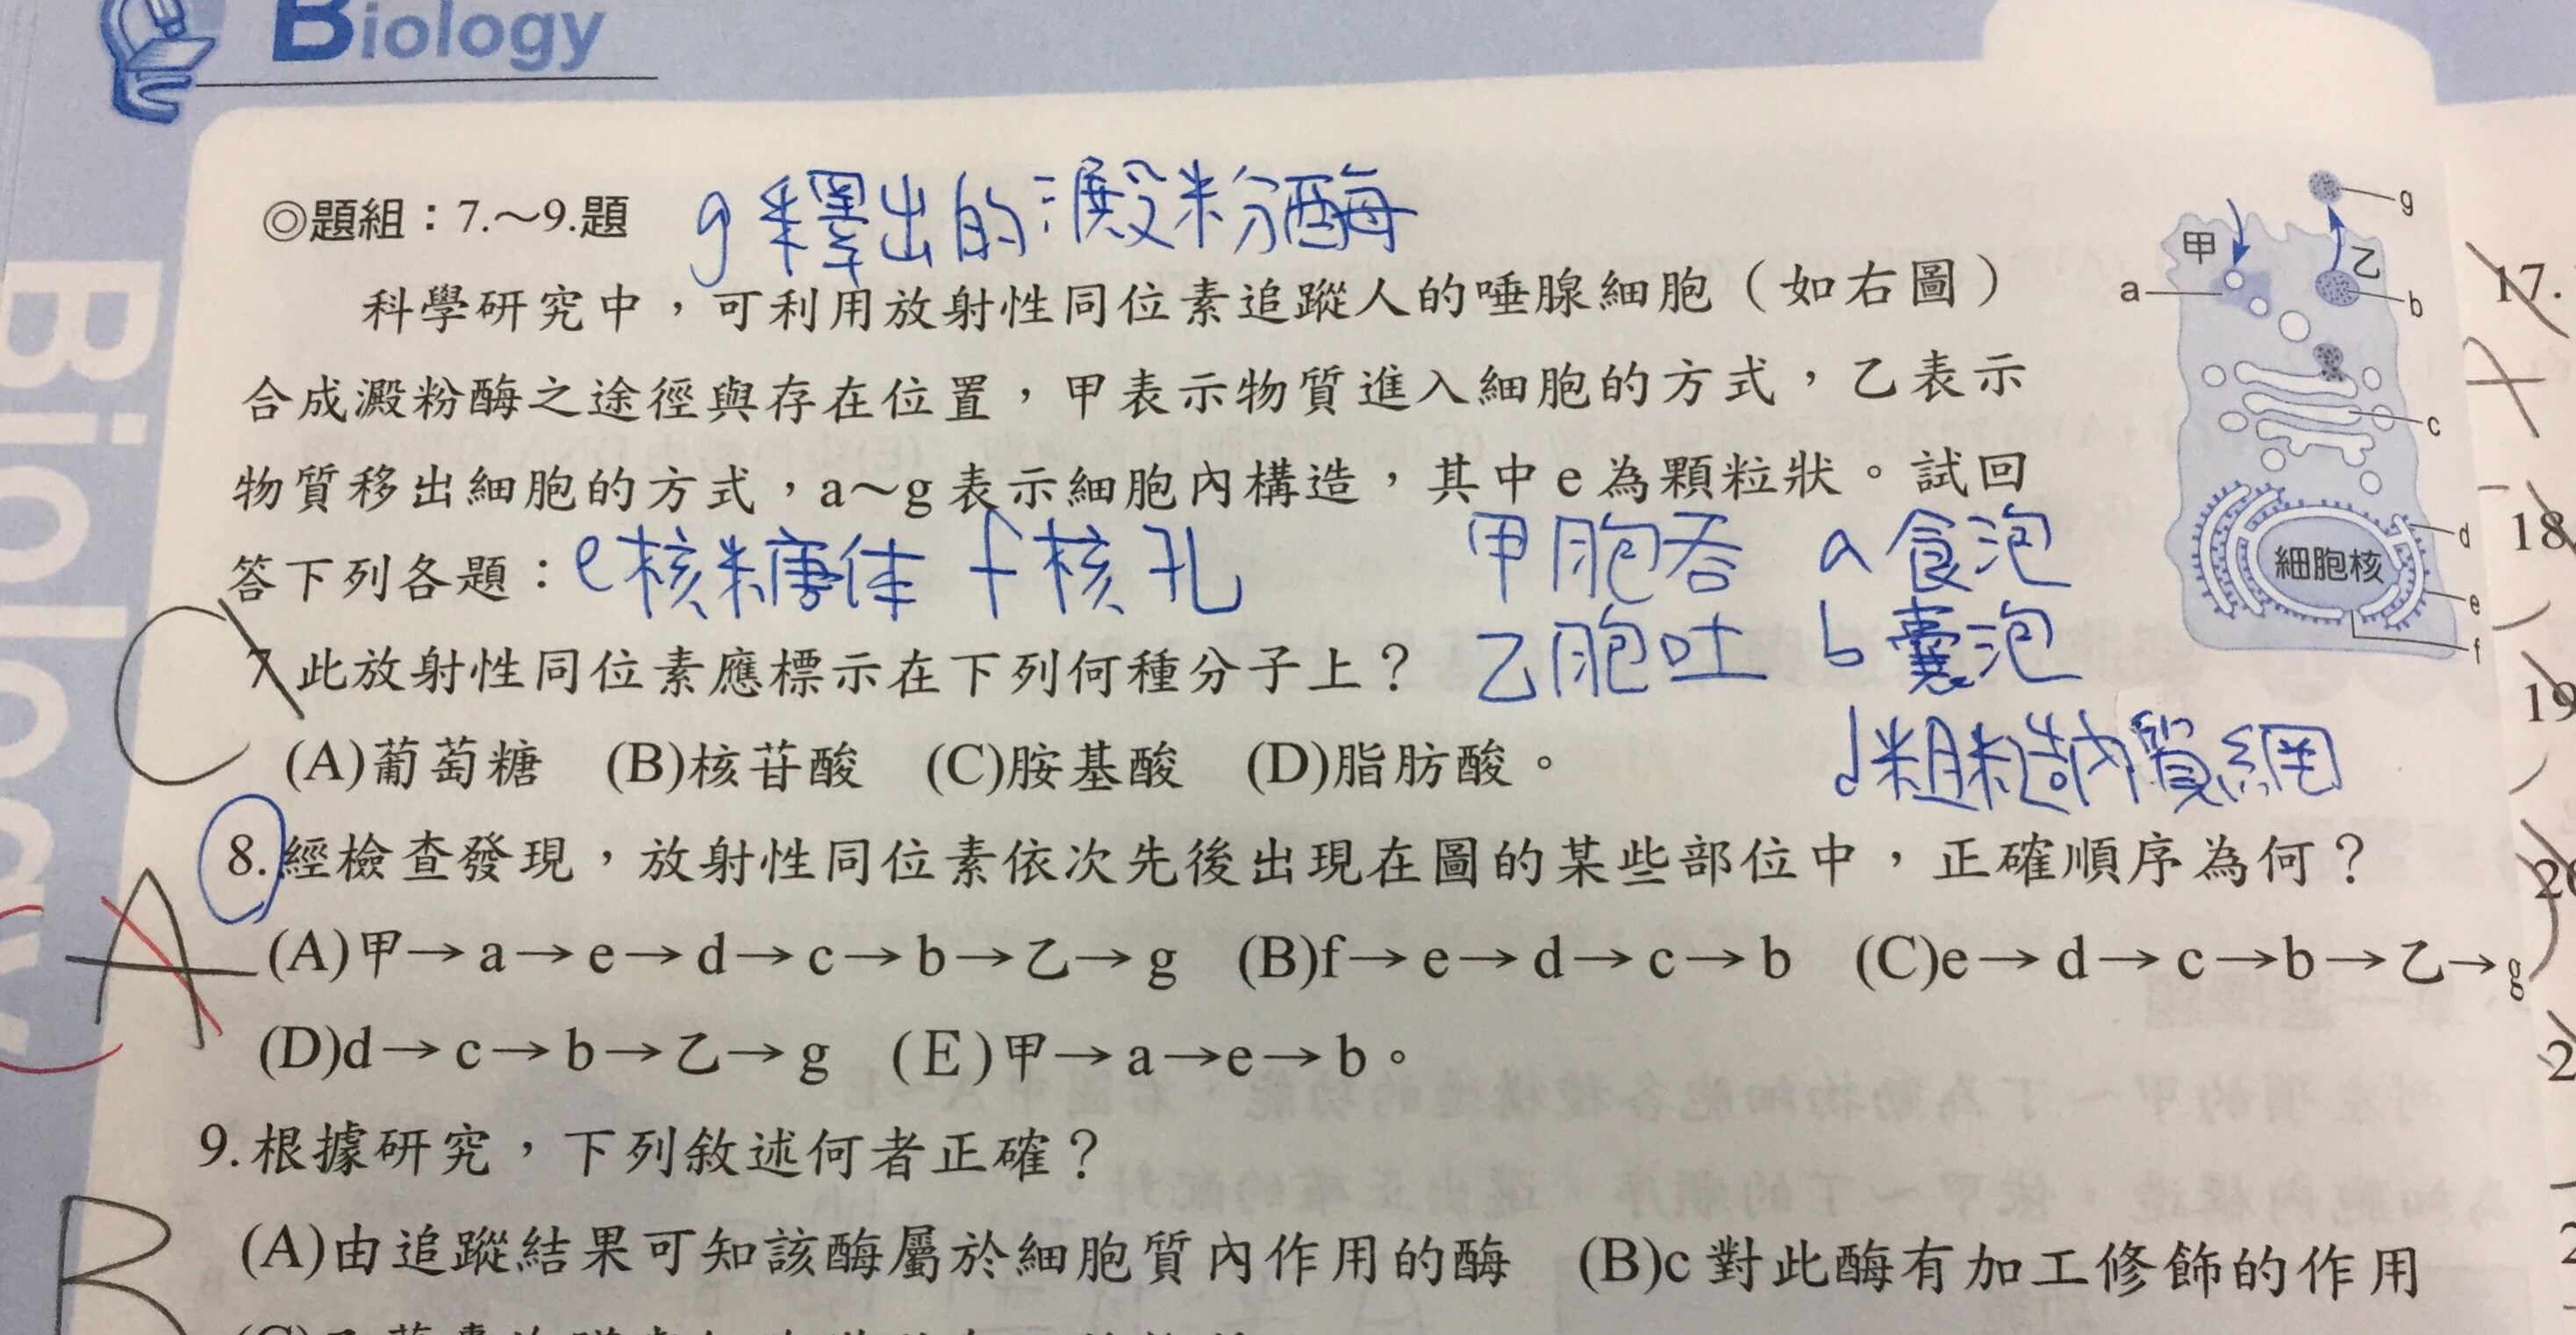 Biology
Biology
◎題組：7.～9.題
g釋出的澱粉酶
科學研究中，可利用放射性同位素追蹤人的唾腺細胞（如右圖）
合成澱粉酶之途徑與存在位置，甲表示物質進入細胞的方式，乙表示
物質移出細胞的方式，a～g表示細胞內構造，其中e為顆粒狀。試回
答下列各題：
e核糖体 f核孔
甲胞吞 a食泡
乙胞吐 b囊泡
d粗糙內質網
g
甲
乙
a
b
c
細胞核
d
e
f
C
7.此放射性同位素應標示在下列何種分子上？
(A)葡萄糖 (B)核苷酸 (C)胺基酸 (D)脂肪酸。
A
8.經檢查發現，放射性同位素依次先後出現在圖的某些部位中，正確順序為何？
(A)甲→a→e→d→c→b→乙→g (B)f→e→d→c→b (C)e→d→c→b→乙→g
(D)d→c→b→乙→g (E)甲→a→e→b。
B
9.根據研究，下列敘述何者正確？
(A)由追蹤結果可知該酶屬於細胞質內作用的酶 (B)c對此酶有加工修飾的作用
17.
18
19